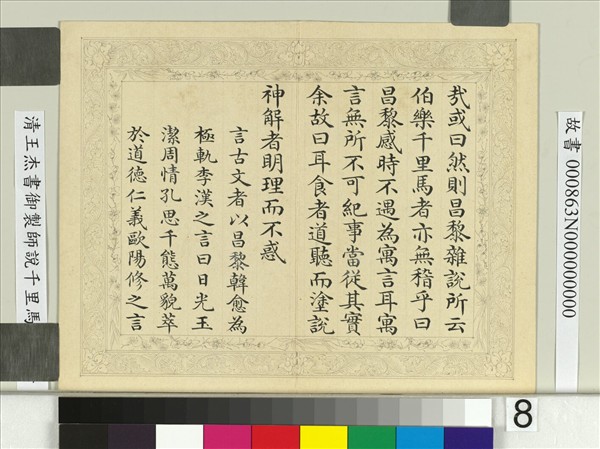 哉或曰然則昌黎雜說所云
伯樂千里馬者亦無稽乎曰
昌黎感時不遇為寓言耳寓
言無所不可紀事當從其實
余故曰耳食者道聽而塗說
神解者明理而不惑
言古文者以昌黎韓愈為
極軌李漢之言曰日光玉
潔周情孔思千態萬貌萃
於道德仁義歐陽修之言
故書 000863N000000000
清王杰書御製師說千里馬
8